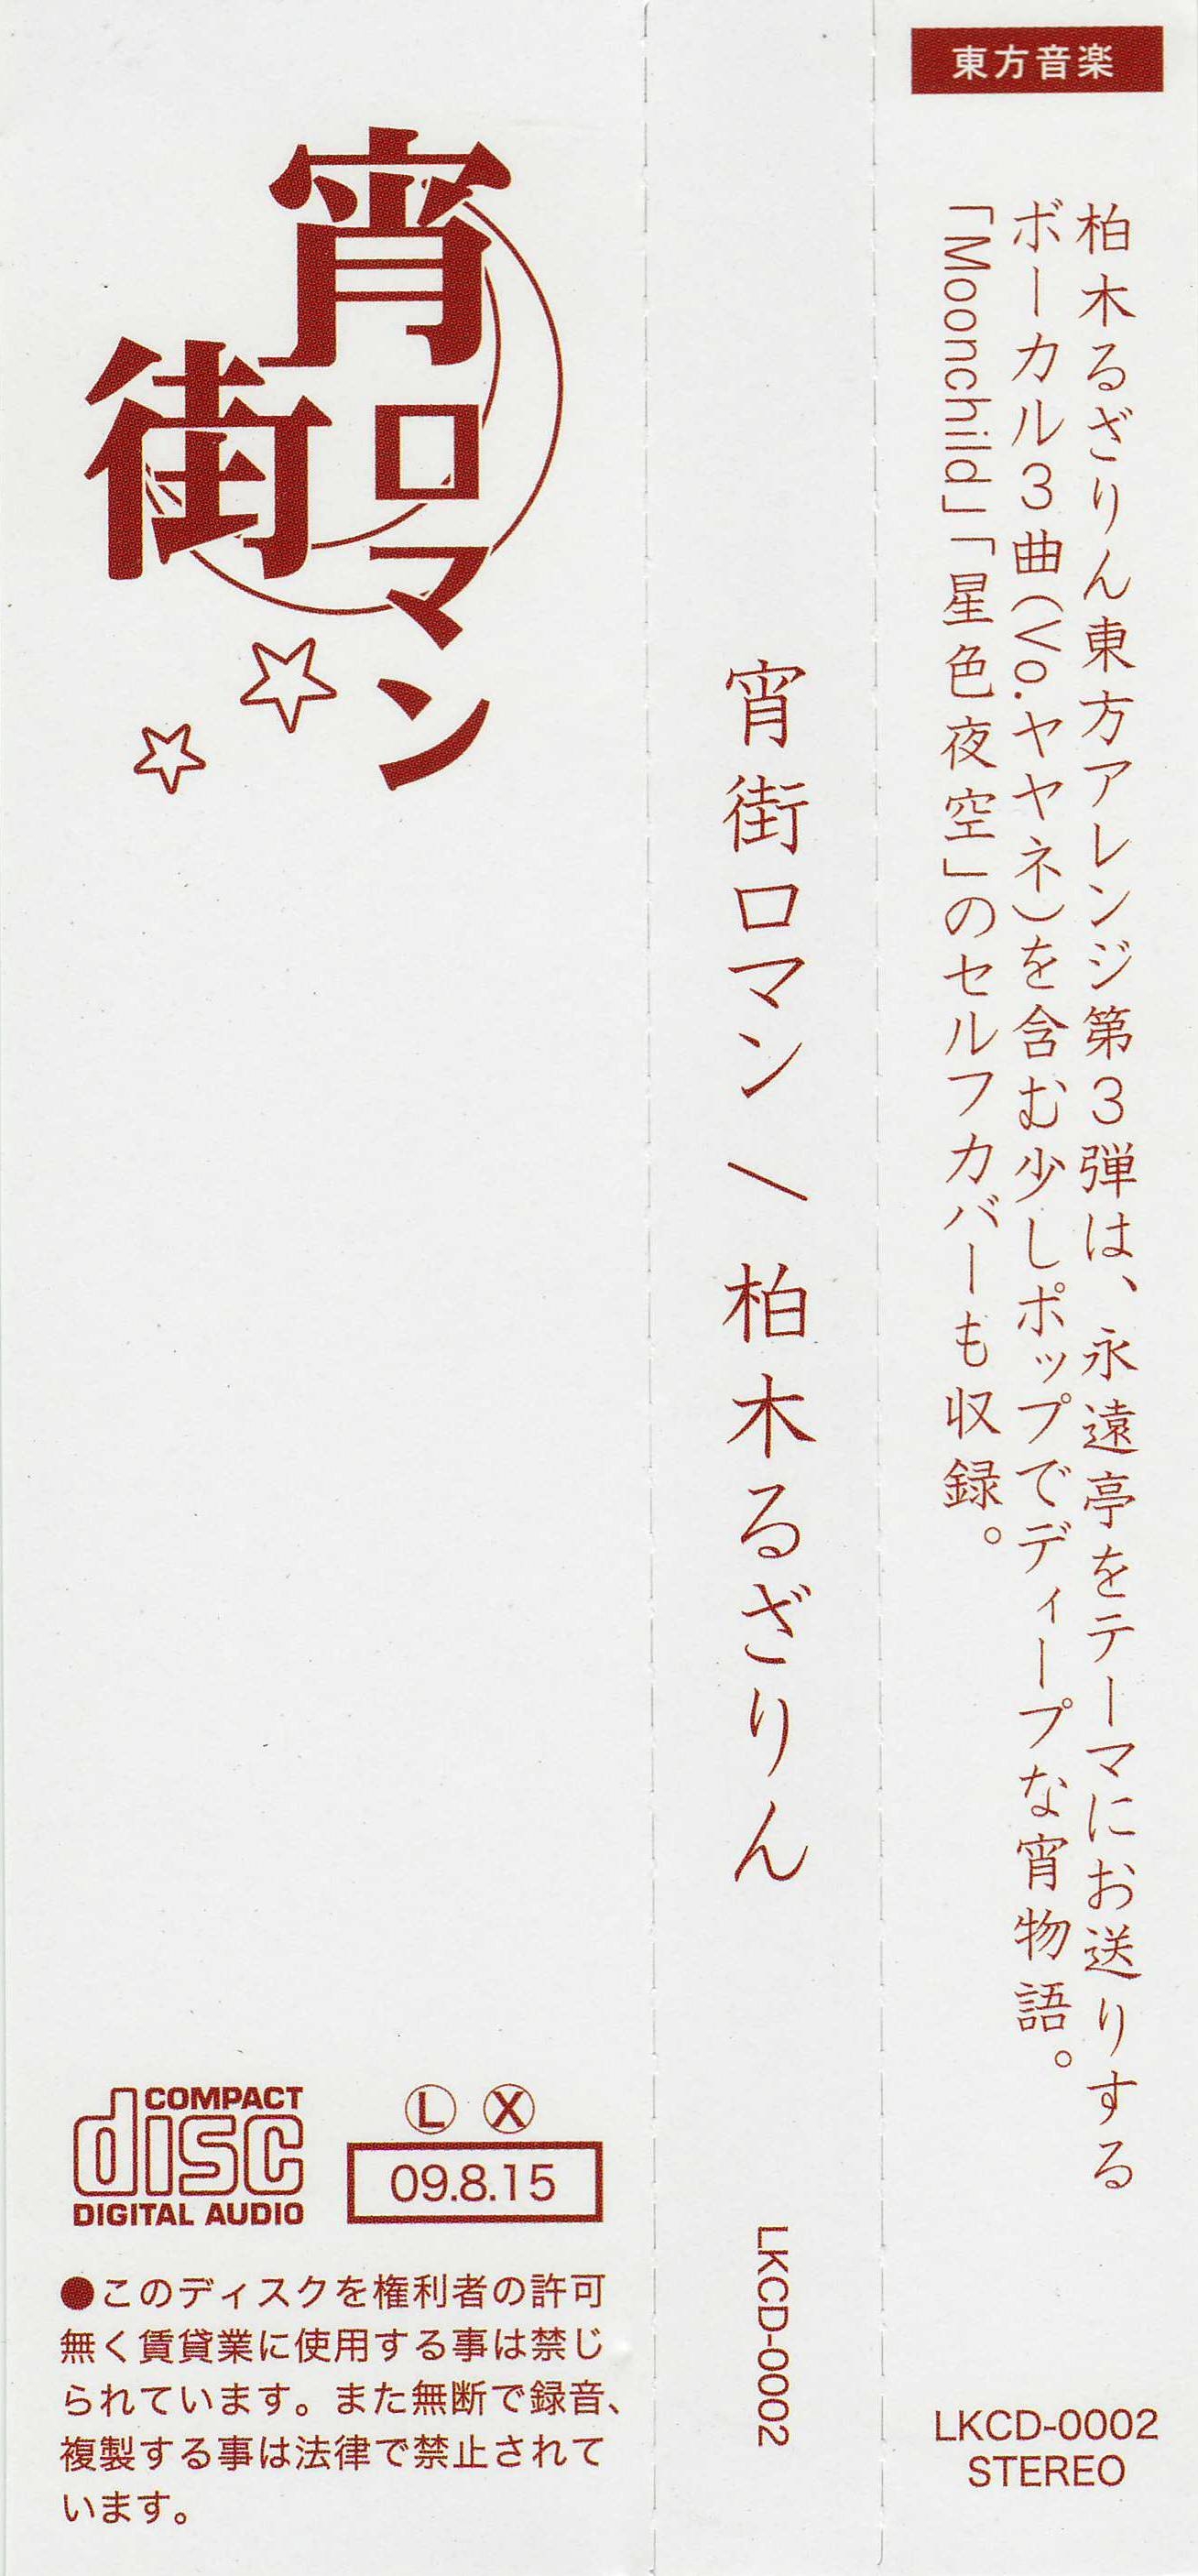 東方音楽
柏木るざりん東方アレンジ第3弾は、永遠亭をテーマにお送りする
ボーカル3曲(Vo.ヤヤネ)を含む少しポップでディープな宵物語。
「Moonchild」「星色夜空」のセルフカバーも収録。
LKCD-0002
STEREO
宵街ロマン / 柏木るざりん
LKCD-0002
宵
街
ロマン
COMPACT
disc
DIGITAL AUDIO
Ⓛ Ⓧ
09.8.15
●このディスクを権利者の許可
無く賃貸業に使用する事は禁じ
られています。また無断で録音、
複製する事は法律で禁止されて
います。